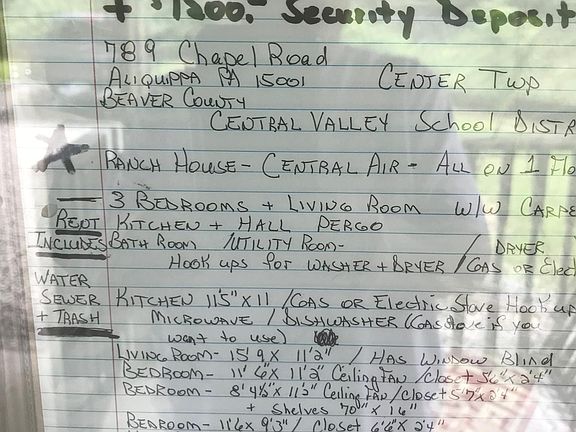 + $1500.- Security Deposit
789 Chapel Road
ALIQUIPPA PA 15001 CENTER TWP
BEAVER COUNTY
CENTRAL VALLEY School DISTR
RANCH HOUSE - CENTRAL AIR - ALL ON 1 Flo
3 BEDROOMS + LIVING ROOM W/W CARPE
RENT KITCHEN + HALL PERGO
INCLUDES BATH ROOM /UTILITY ROOM- DRYER
HOOK UPS for WASHER + DRYER / GAS OR Elect
WATER
SEWER KITCHEN 11'5"X11 /GAS OR Electric Stove Hook up
+ TRASH MICROWAVE / DISHWASHER (Gas stove if you
want to use)
LIVING ROOM- 15'9 X 11'2" / HAS WINDOW Blind
BEDROOM- 11'6 X 11'2" Ceiling FAN /Closet 5'6" X 2'4"
BEDROOM- 8'4½" X 11'2" Ceiling FAN /Closet 5'7" X 2'4"
+ Shelves 70" X 16"
BEDROOM- 11'6 X 9'3" / Closet 6'6" X 2'4"